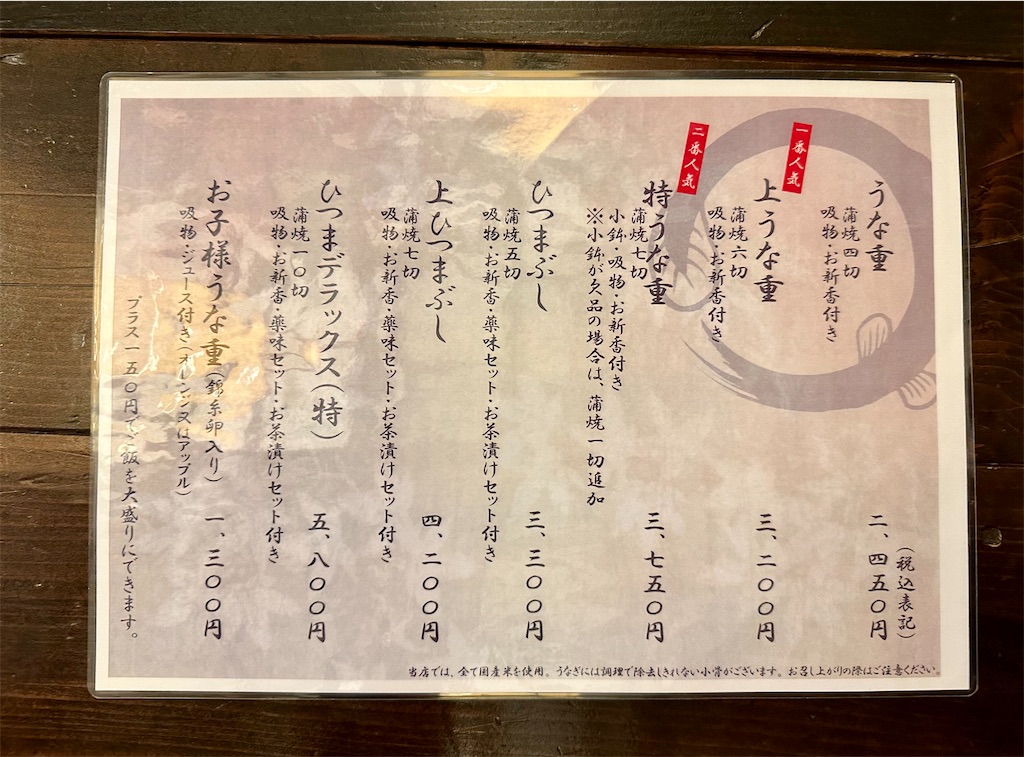 （税込表記）
うな重
二、四五〇円
蒲焼四切
吸物・お新香付き
一番人気
上うな重
三、二〇〇円
蒲焼六切
吸物・お新香付き
二番人気
特うな重
三、七五〇円
蒲焼七切
小鉢・吸物・お新香付き
※小鉢が欠品の場合は、蒲焼一切追加
ひつまぶし
三、三〇〇円
蒲焼五切
吸物・お新香・薬味セット・お茶漬けセット付き
上ひつまぶし
四、二〇〇円
蒲焼七切
吸物・お新香・薬味セット・お茶漬けセット付き
ひつまデラックス（特）
五、八〇〇円
蒲焼一〇切
吸物・お新香・薬味セット・お茶漬けセット付き
お子様うな重（錦糸卵入り）
一、三〇〇円
吸物・ジュース付き（オレンジ又はアップル）
プラス一五〇円でご飯を大盛りにできます。
当店では、全て国産米を使用。うなぎには調理で除去しきれない小骨がございます。お召し上がりの際はご注意ください。